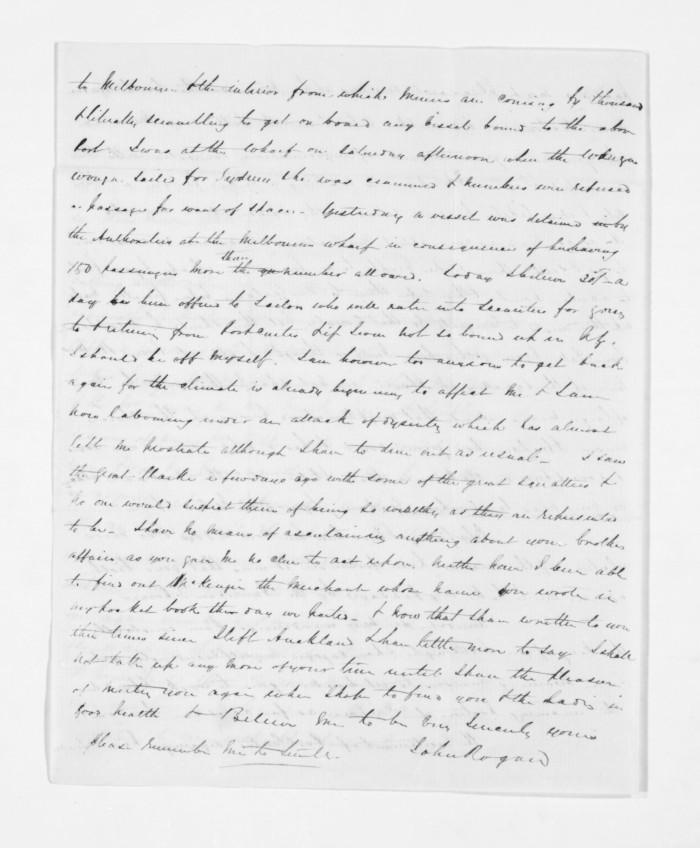 to Melbourne & the interior from which Miners are coming by thousands
& literally scrambling to get on board any vessel bound to the above
Port. I was at the wharf on Saturday afternoon when the
wonga sailed for Sydney she was examined & numbers were refused
a passage for want of space. Yesterday a vessel was detained by
the Authorities at the Melbourne wharf in consequence of her having
150 passengers more than the number allowed. Today I believe 20/- a
day has been offered to Sailors who will enter into securities for going
to & returning from Port Curtis & if I was not so bound up in
I should be off myself. I am however too anxious to get back
again for the climate is already beginning to affect me & I am
now labouring under an attack of dysentry which has almost
left me prostrate although I have to dine out as usual. I saw
the great Clarke a few days ago with some of the great Squatters &
no one would suspect them of being so wealthy as they are represented
to be. I have no means of ascertaining anything about your brothers
affairs as you gave me no clue to act upon, neither have I been able
to find out McKenzie the Merchant whose name you wrote in
my pocket book the day we parted. & now that I have written to you
three times since I left Auckland I have little more to say. I shall
not take up any more of your time until I have the pleasure
of meeting you again when I hope to find you & the Ladies in
good health & Believe me to be Ever Sincerely yours
Please remember me to John Rogan